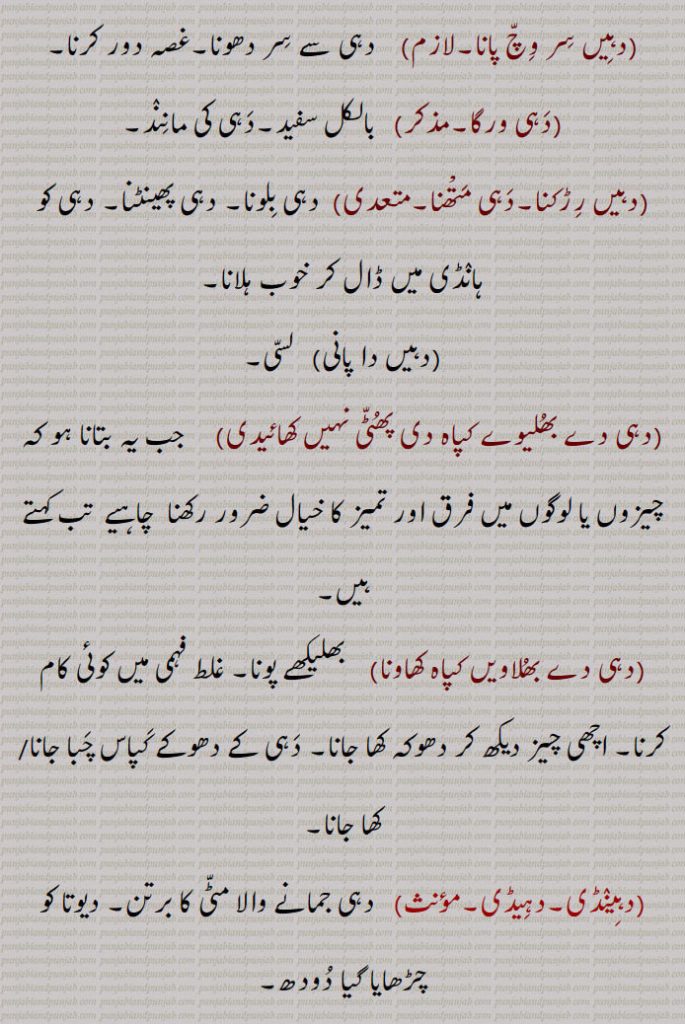 (دہِیں سِر وِچّ پانا۔لازم) دہی سے سِر دھونا۔غصہ دور کرنا۔
(دَہی ورگا۔مذکر) بالکل سفید۔دَہی کی مانِنْد۔
(دہیں رِڑکنا۔دَہی مَتْھنا۔متعدی) دہی بِلونا۔ دہی پھینٹنا۔ دہی کو
ہانْڈی میں ڈال کر خوب ہلانا۔
(دہیں دا پانی) لسّی۔
(دہی دے بھُلیوے کپاہ دی پھُٹّی نہیں کھائیدی) جب یہ بتانا ہو کہ
چیزوں یا لوگوں میں فرق اور تمیز کا خیال ضرور رکھنا چاہیے تب کہتے
ہیں۔
(دہی دے بھُلاویں کپاہ کھاونا) بھلیکھے پونا۔ غلط فہمی میں کوئی کام
کرنا۔ اچھی چیز دیکھ کر دھوکہ کھا جانا۔ دَہی کے دھوکے کَپاس چَبا جانا/
کھا جانا۔
(دہِینْڈی۔دہِیڈی۔مؤنث) دہی جمانے والا مٹّی کا برتن۔ دیوتا کو
چڑھایا گیا دُودھ۔